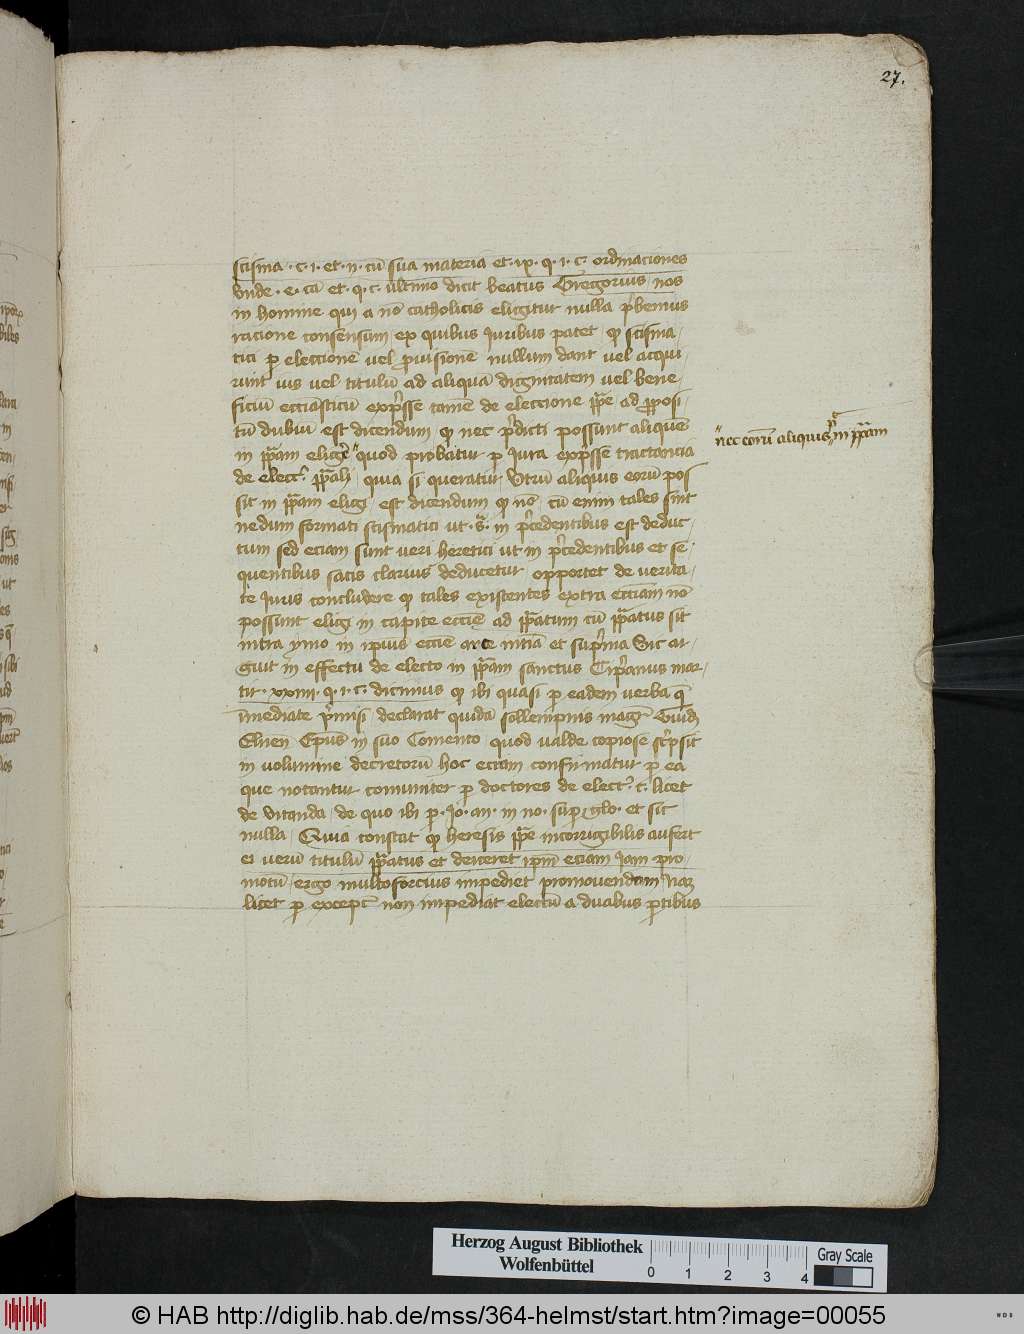 27.
scisma · c · i · et · ii · cū sua materia et · ix · q · i · c · ordinaciones
Vnde · e · cā et · q · c · ultimo dicit beatus Gregorius nos
in homine qui a nō catholicis eligitur nulla p̄bemus
racione consensum ex quibus Juribus patet q scisma-
tici p eleccionē vel ꝓuisionē nullum dant vel acqui-
runt ius vel titulū ad aliquā dignitatem vel bene-
ficiū ecciasticū exp̄sse tamē de eleccione pp̄e ad ꝓposi-
tū dubiū est dicendum q nec p̄dicti possunt aliquē
in pp̄am eliḡe quod probatur p Jura exp̄sse tractancia
de elect pp̄ali quia si queratur Vtrū aliquis eorū pos
sit in pp̄am eligi est dicendum q nō cū enim tales sint
nedum formati scismatici ut · s̄ · in p̄cedentibus est deduc-
tum sed eciam sunt veri heretici ut in p̄cedentibus et se-
quentibus satis clarius deducetur opportet de verita-
te Juris concludere q tales existentes extra ecciam nō
possunt eligi in capite eccie ad pp̄atum cū pp̄atus sit
intra ymo in ipius eccie arce intīa et sup̄ma Sic ar-
guit in effectu de electo in pp̄am sanctus Cip̄anus mar-
tir · xxiiii · q · i · c · dicimus q ibi quasi p eadem verba q̄
īmediate p̄misi declarat quidā sollempnis magr̄ Guid
Elnen Epus in suo Comento quod valde copiose sc̄psit
in volumine decretorū hoc eciam confirmatur p ea
que notantur comuniter p doctores de elect · c · licet
de vitanda de quo ibi p · Jo · an · in no · sup glo · et sit
nulla Quia constat q heresis pp̄e incorrigibilis aufert
ei verū titulū pp̄atus et deiceret ipm̄ eciam Jam pro-
motū ergo multoforcius impediet promouendam Nam
licet p except non impediat electū a duabus ptibus
nec eorū aliquis in pp̄am
Herzog August Bibliothek
Wolfenbüttel
0 1 2 3 4
Gray Scale
© HAB http://diglib.hab.de/mss/364-helmst/start.htm?image=00055